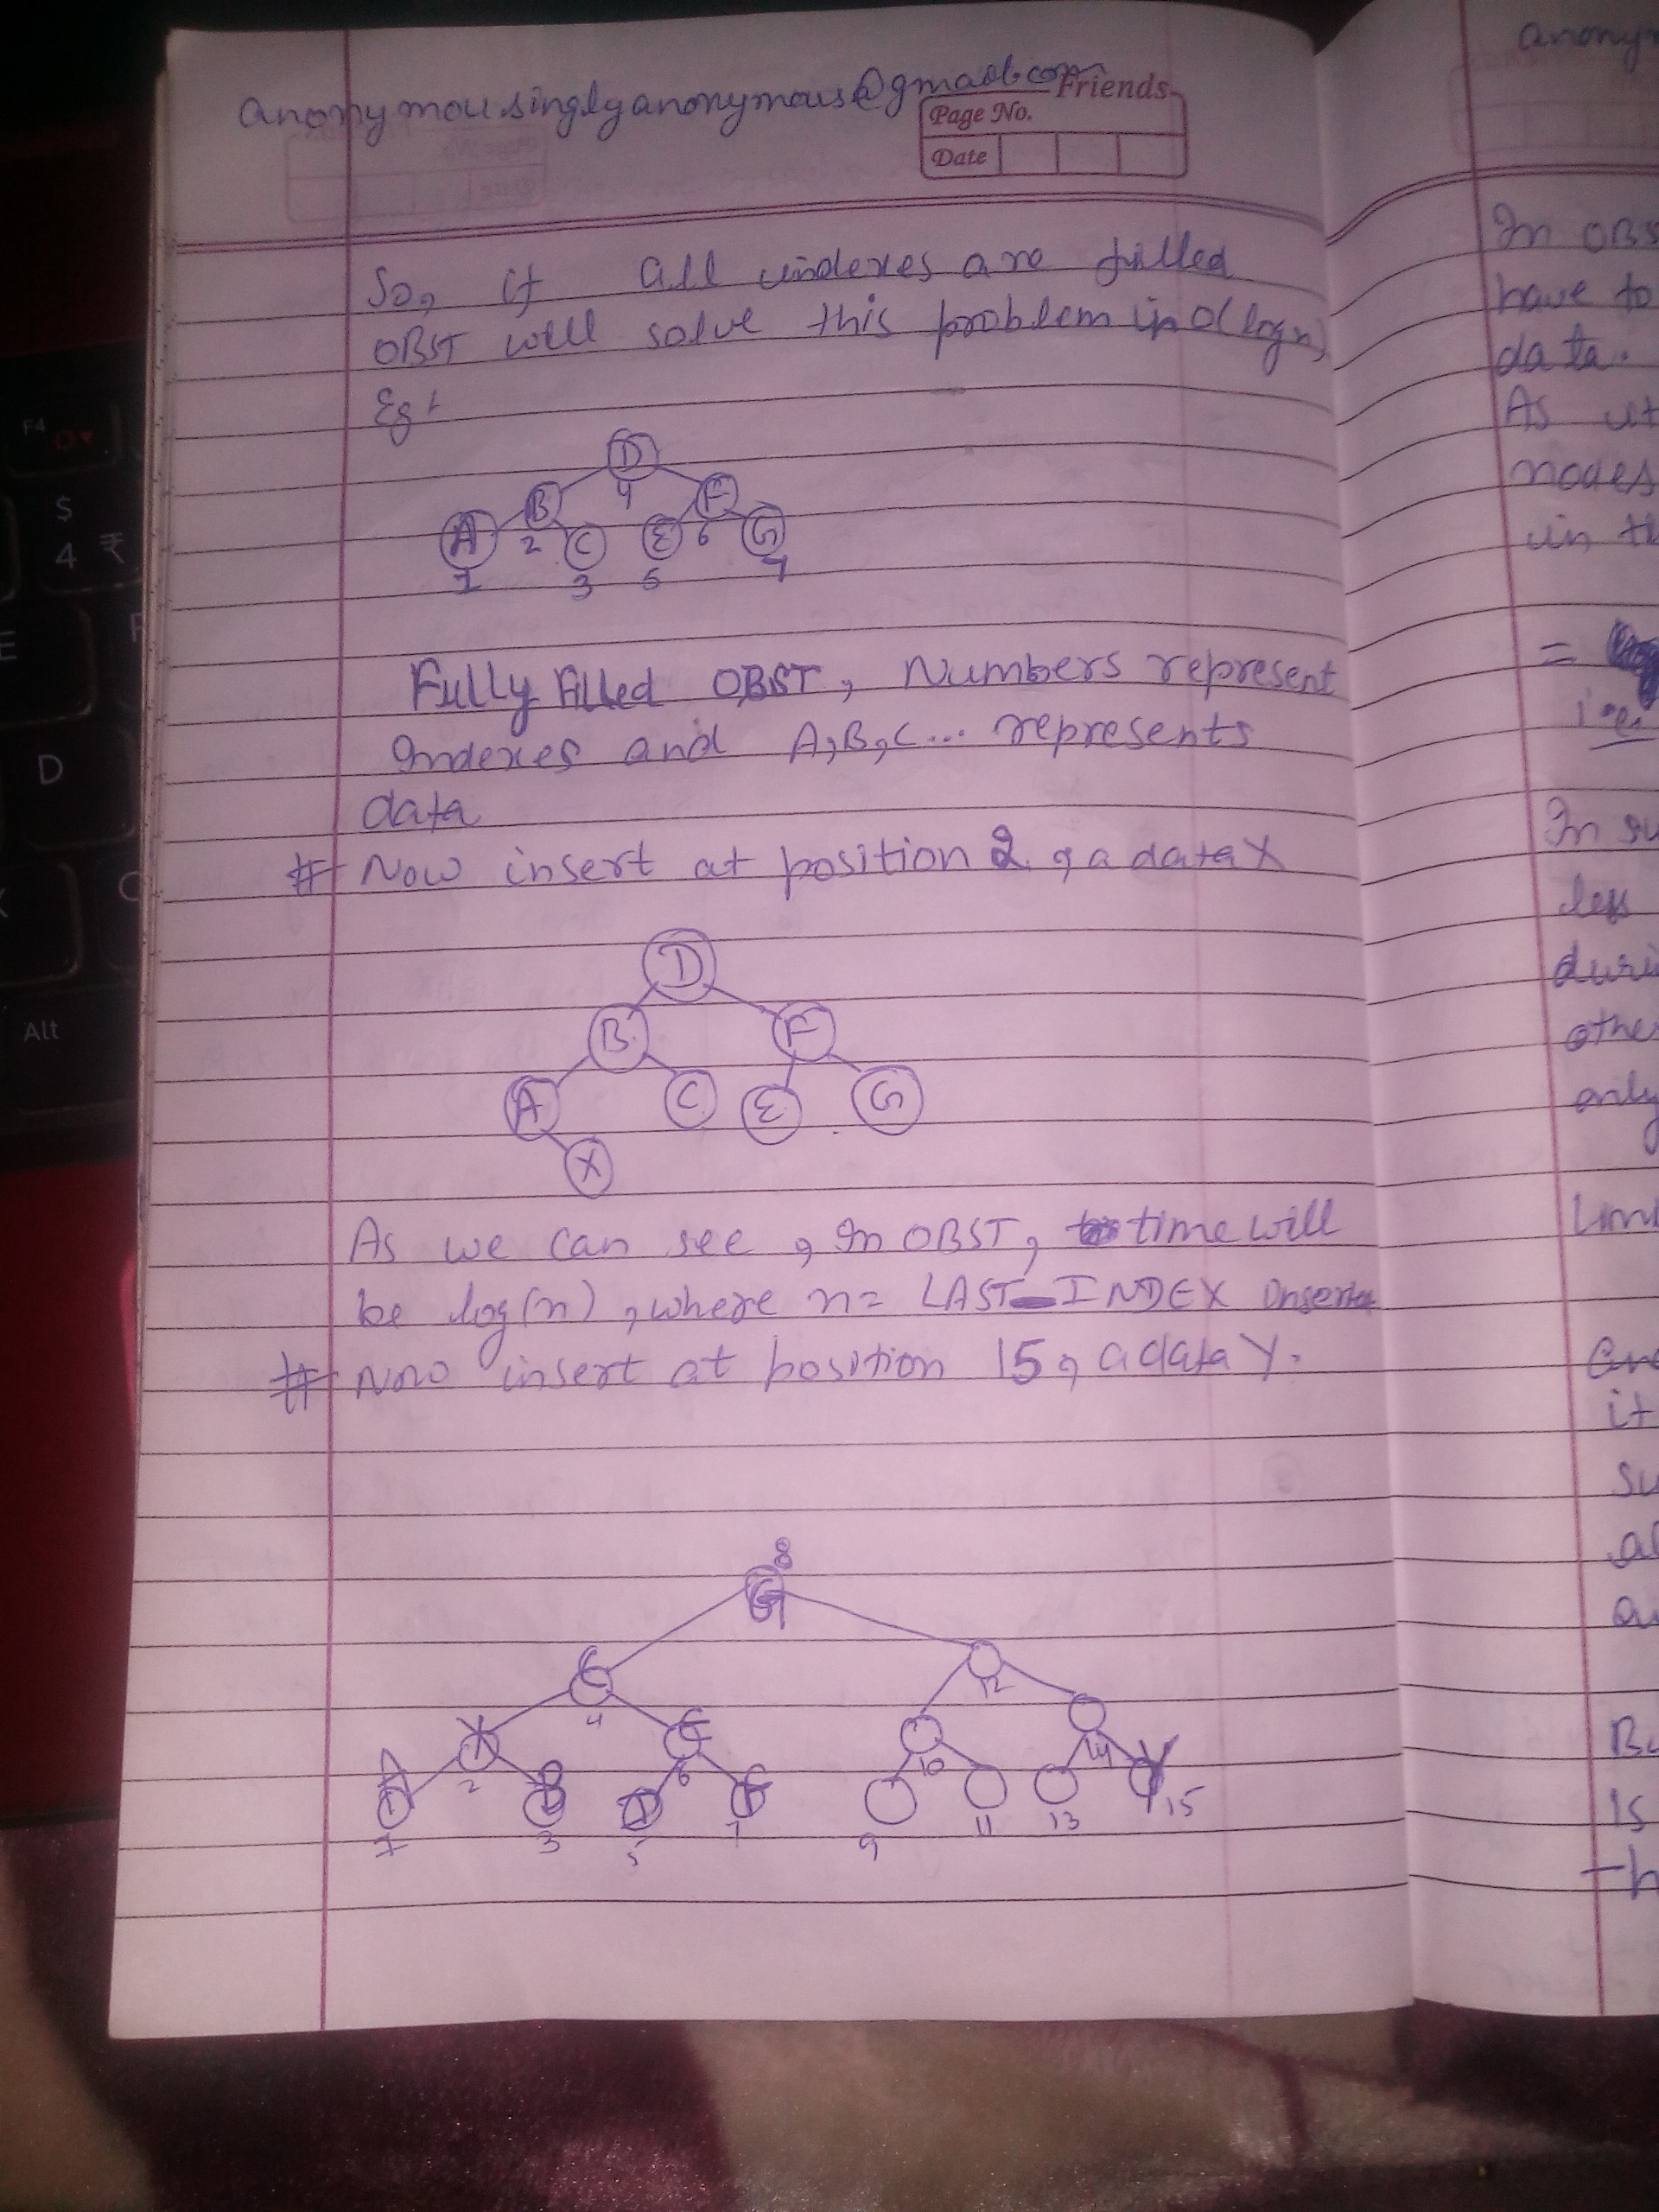 anonymousinglyanonymous@gmail.com
Friends
Page No.
Date
So, if all indexes are filled
OBST will solve this problem in O(log n)
Eg:
D
4
B
F
A
2
C
E
6
G
1
3
5
7
Fully filled OBST, Numbers represent
Indexes and A,B,C... represents
data
# Now insert at position 2, a data X
D
B
F
A
C
E
G
X
As we can see, In OBST, time will
be log(n), where n= LAST_INDEX Inserted
# Now insert at position 15, a data Y.
8
G
C
4
12
X
2
E
6
10
14
A
1
B
3
D
5
F
7
9
11
13
Y
15
anony
In OBS
have to
data.
As it
nodes
in th
=
i.e.
In su
less
duri
othe
only
Lim
are
it
su
al
Bu
is
th
F4
$
4 ₹
E
D
Alt